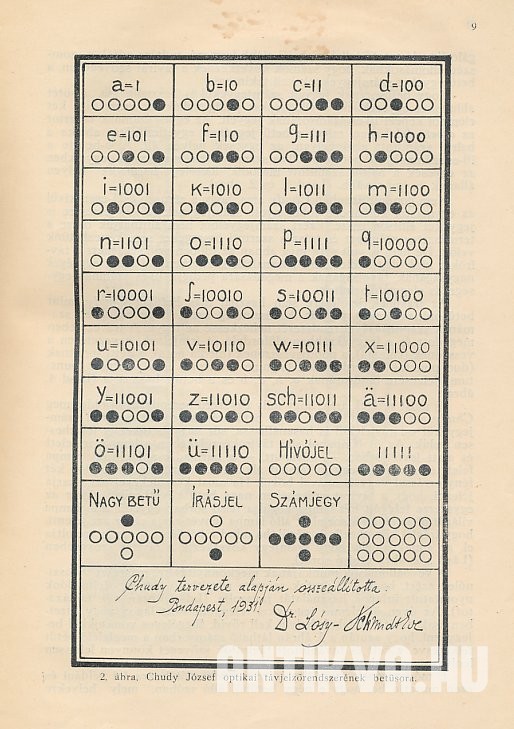 9
a=1 b=10 c=11 d=100
e=101 f=110 g=111 h=1000
i=1001 k=1010 l=1011 m=1100
n=1101 o=1110 p=1111 q=10000
r=10001 ſ=10010 s=10011 t=10100
u=10101 v=10110 w=10111 x=11000
y=11001 z=11010 sch=11011 ä=11100
ö=11101 ü=11110 HÍVÓJEL 11111
NAGY BETŰ ÍRÁSJEL SZÁMJEGY
Chudy tervezete alapján összeállította:
Budapest, 1931.
Dr Lósy-Schmidt Ede
ANTIKVA.HU
2. ábra. Chudy József optikai távjelzőrendszerének betűsora.